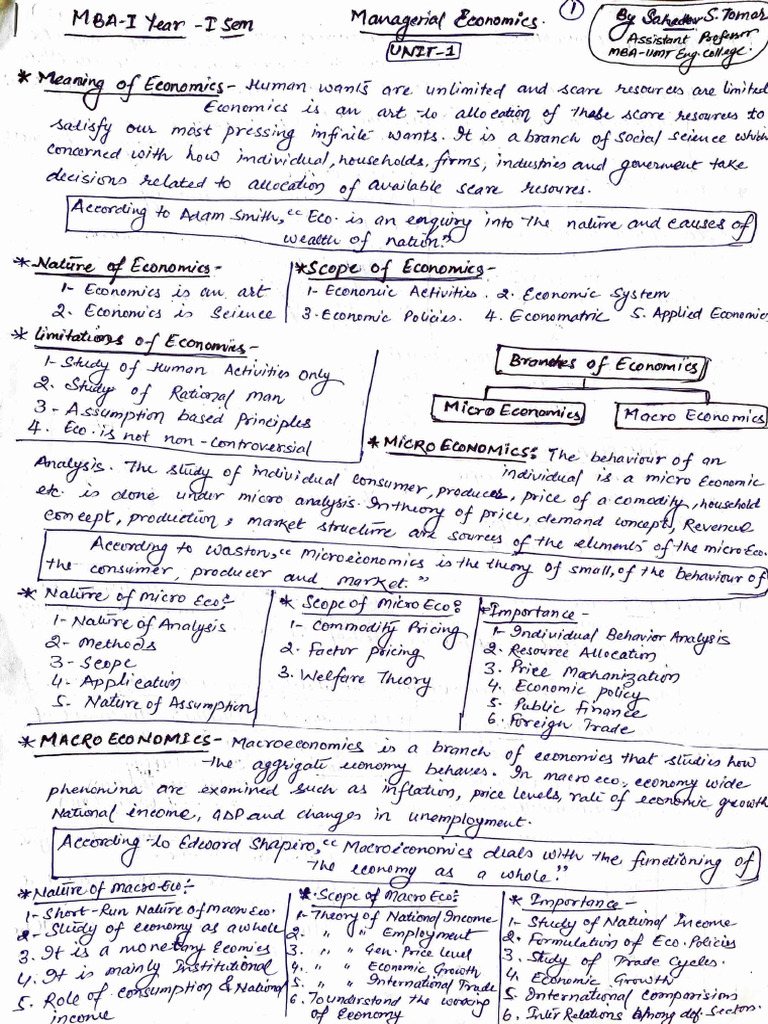 MBA-I Year - I Sem
Managerial Economics.
UNIT-1
1
By Sahadev S. Tomar
Assistant Professor
MBA-UMT Eng. College.
* Meaning of Economics - Human wants are unlimited and scare resources are limited
Economics is an art to allocation of these scare resources to
satisfy our most pressing infinite wants. It is a branch of social science which
concerned with how individual, households, firms, industries and goverment take
decisions related to allocation of available scare resoures.
According to Adam Smith, "Eco. is an enquiry into the nature and causes of
wealth of nation."
* Nature of Economics -
1- Economics is an art
2. Economics is Science
* Scope of Economics -
1- Economic Activities. 2. Economic System
3. Economic Policies. 4. Econometric 5. Applied Economics
* Limitations of Economics -
1- Study of Human Activities Only
2. Study of Rational man
3 - Assumption based Principles
4. Eco. is not non-controversial
Branches of Economics
Micro Economics
Macro Economics
* MICRO ECONOMICS: The behaviour of an
individual is a micro Economic
Analysis. The study of individual consumer, producer, price of a comodity, household
etc. is done under micro analysis. In theory of price, demand concept, Revenue
concept, production, market structure are sources of the elements of the micro Eco.
According to Waston, "Microeconomics is the theory of small, of the behaviour of
the consumer, producer and market."
* Nature of micro Eco:-
1- Nature of Analysis
2- Methods
3- Scope
4- Application
5. Nature of Assumption
* Scope of Micro Eco:
1- Commodity Pricing
2. Factor pricing
3. Welfare Theory
* Importance -
1- Individual Behavior Analysis
2. Resource Allocation
3. Price Mechanization
4. Economic policy
5. Public Finance
6. Foreign Trade
* MACRO ECONOMICS - Macroeconomics is a branch of economics that studies how
the aggrigate economy behaves. In macro eco., economy wide
phenomina are examined such as inflation, price levels, rate of economic growth
National income, GDP and changes in unemployment.
According to Edward Shapiro, "Macroeconomics deals with the functioning of
the economy as a whole."
* Nature of macro Eco:-
1- Short-Run Nature of Macro Eco.
2- Study of economy as a whole
3. It is a monetary Ecomics
4. It is mainly Institutional
5. Role of consumption & National
income
* Scope of Macro Eco:
1- Theory of National Income
2. " " Employment
3. " " Gen. Price level
4. " " Economic Growth
5. " " International Trade
6. To understand the working
of Economy
* Importance -
1- Study of National Income
2. Formulation of Eco. Policies
3. Study of Trade Cycles.
4. Economic Growth
5. International Comparisions
6. Inter Relations Among def. Sectors.